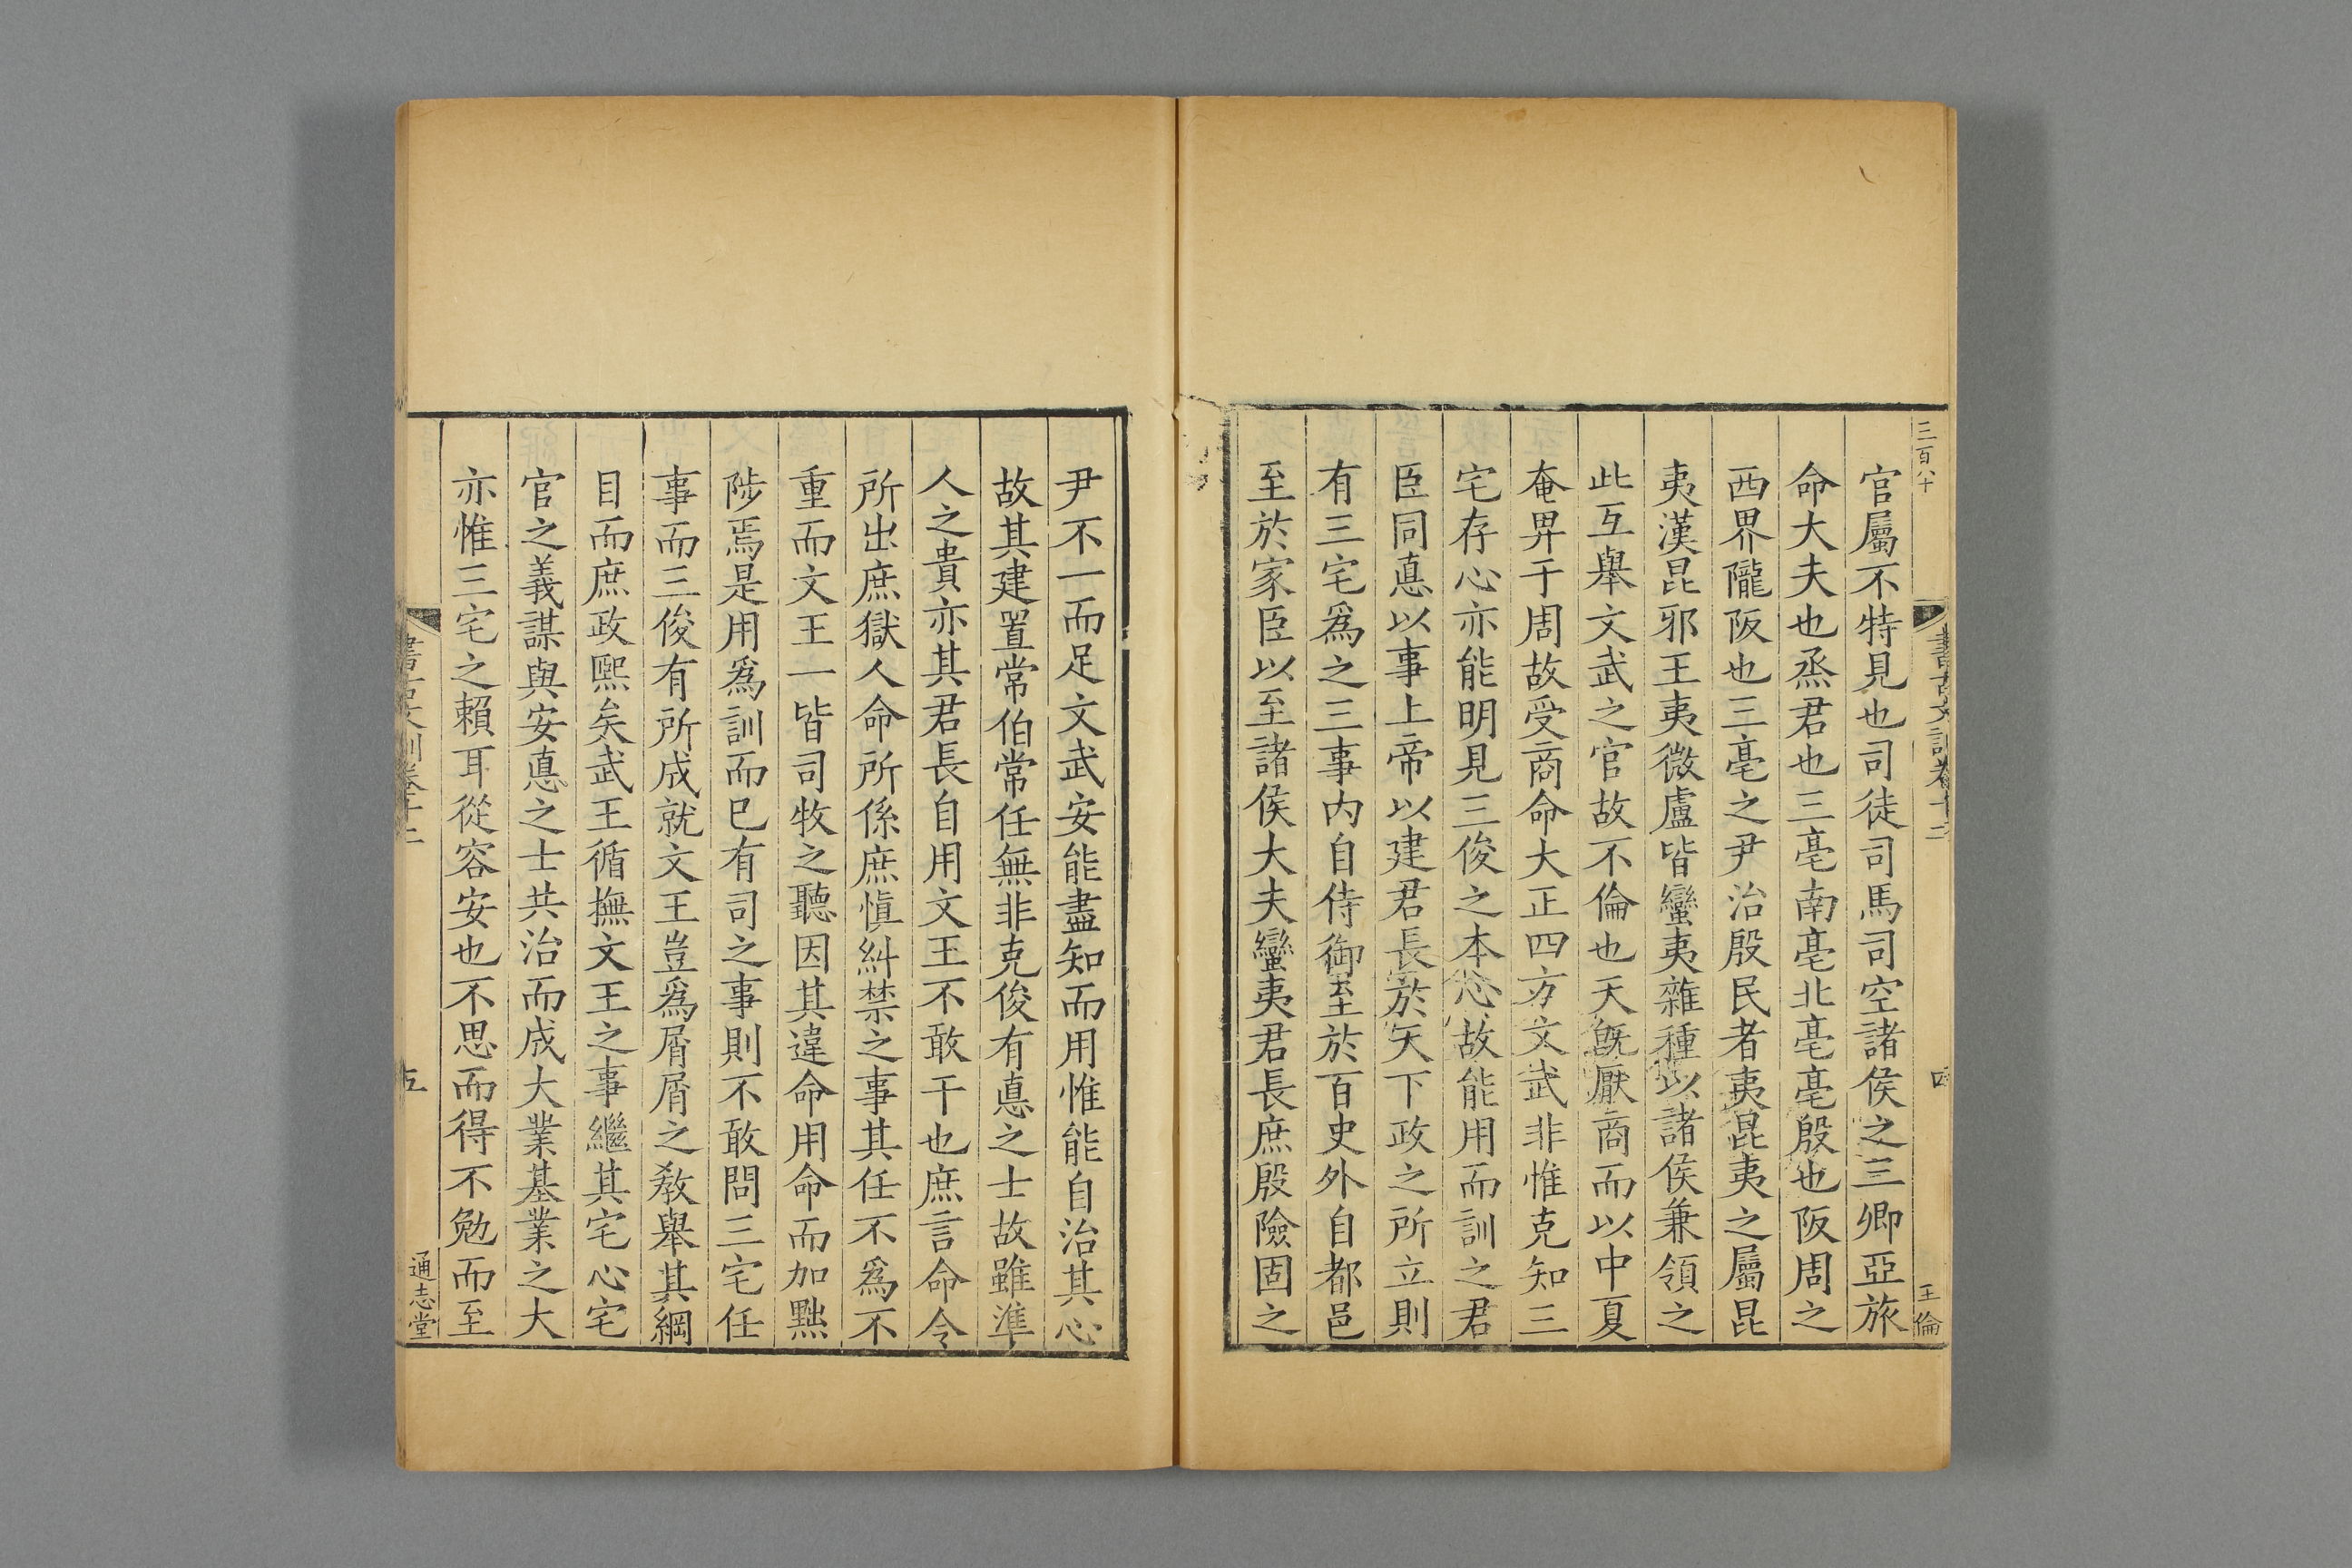 三百八十
書古文訓卷十二
四
王倫
官屬不特見也司徒司馬司空諸侯之三卿亞旅
命大夫也烝君也三亳南亳北亳亳殷也阪周之
西界隴阪也三亳之尹治殷民者夷昆夷之屬昆
夷漢昆邪王夷微盧皆蠻夷雜種以諸侯兼領之
此互舉文武之官故不倫也天旣厭商而以中夏
奄畀于周故受商命大正四方文武非惟克知三
宅存心亦能明見三俊之本心故能用而訓之君
臣同惪以事上帝以建君長於天下政之所立則
有三宅爲之三事内自侍御至於百史外自都邑
至於家臣以至諸侯大夫蠻夷君長庶殷險固之
尹不一而足文武安能盡知而用惟能自治其心
故其建置常伯常任無非克俊有惪之士故雖準
人之貴亦其君長自用文王不敢干也庶言命令
所出庶獄人命所係庶愼糾禁之事其任不爲不
重而文王一皆司牧之聽因其違命用命而加黜
陟焉是用爲訓而已有司之事則不敢問三宅任
事而三俊有所成就文王豈爲屑屑之敎舉其綱
目而庶政熙矣武王循撫文王之事繼其宅心宅
官之義謀與安惪之士共治而成大業基業之大
亦惟三宅之賴耳從容安也不思而得不勉而至
書古文訓卷十二
五
通志堂